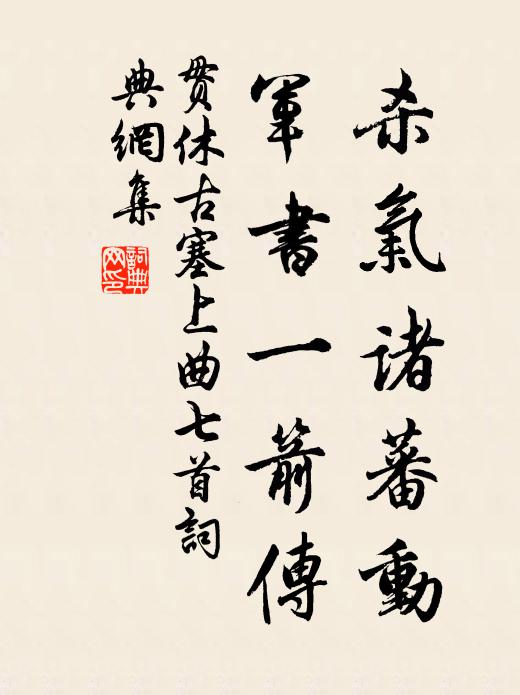 杀氣諸蕃動
軍書一箭傳
贯休古塞上曲七首詞
典網集
詞典网印